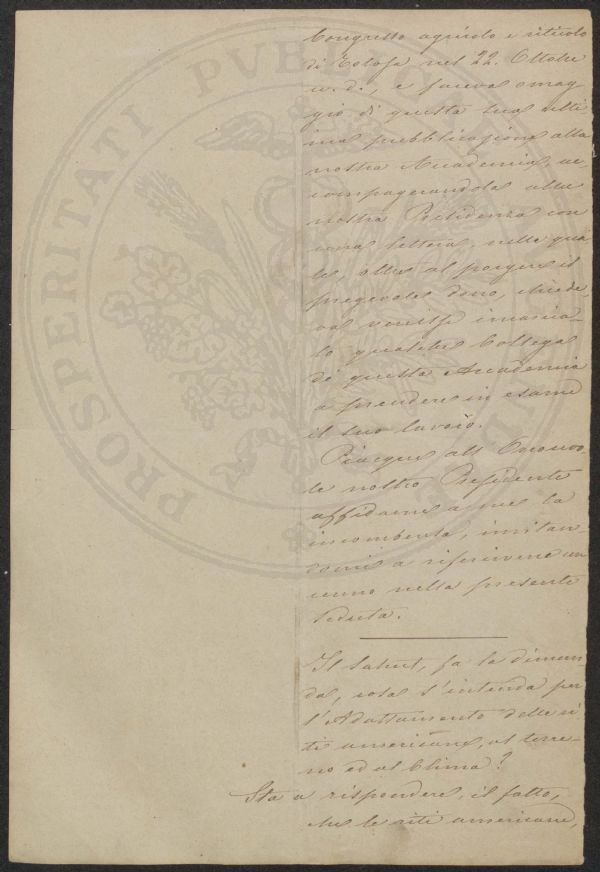 Congresso agricolo e viticolo
di Tolosa nel 22. Ottobre
u.d., e faceva omag-
gio di questa sua ulti-
ma pubblicazione alla
nostra Accademia, ac
compagnandola alla
nostra Presidenza con
una lettera, nella qua
le, oltre al porgere il
pregevole dono, chiede,
va venisse incarica-
to qualche Collega
di questa Accademia
a prendere in esame
il suo lavoro.
Piacque all'Onorevo
le nostro Presidente
affidarne a me la
incombenza, invitan-
domi a riferirvene un
cenno nella presente
seduta.
Il Sahut, fa la diman-
da, cosa s'intenda per
l'Adattamento delle vi
ti americane, al terre-
no ed al Clima?
Sta a rispondere, il fatto,
che le viti americane,
PROSPERITATI PVBLICAE